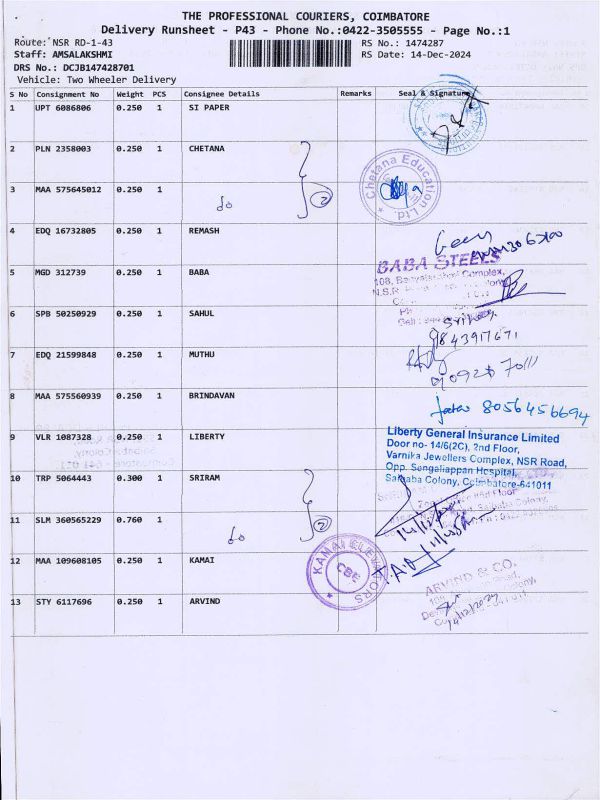 THE PROFESSIONAL COURIERS, COIMBATORE
Delivery Runsheet - P43 - Phone No.:0422-3505555 - Page No.:1
Route: NSR RD-1-43 RS No.: 1474287
Staff: AMSALAKSHMI RS Date: 14-Dec-2024
DRS No.: DCJB147428701
Vehicle: Two Wheeler Delivery
S No Consignment No Weight PCS Consignee Details Remarks Seal & Signature
1 UPT 6086806 0.250 1 SI PAPER
2 PLN 2358003 0.250 1 CHETANA
Chetana Education Ltd.
3 MAA 575645012 0.250 1 do 2
4 EDQ 16732805 0.250 1 REMASH
5 MGD 312739 0.250 1 BABA
BABA STEELS
108, Complex,
N.S.R.
6 SPB 50250929 0.250 1 SAHUL
9843917671
7 EDQ 21599848 0.250 1 MUTHU
8 MAA 575560939 0.250 1 BRINDAVAN
8056456694
9 VLR 1087328 0.250 1 LIBERTY
Liberty General Insurance Limited
Door no- 14/6(2C), 2nd Floor,
Varnika Jewellers Complex, NSR Road,
Opp. Sengaliappan Hospital,
Saibaba Colony, Coimbatore-641011
10 TRP 5064443 0.300 1 SRIRAM
11 SLM 360565229 0.760 1 do 2
12 MAA 109608105 0.250 1 KAMAI
KAMAI ELEVATORS
CBE
13 STY 6117696 0.250 1 ARVIND
ARVIND & CO.
14/12/2024